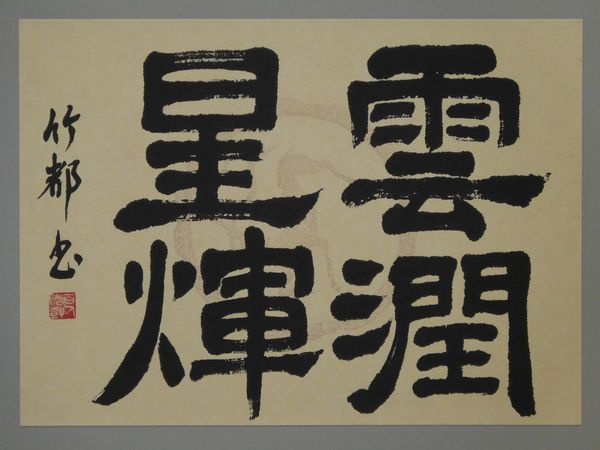 雲潤
星煇
竹都書